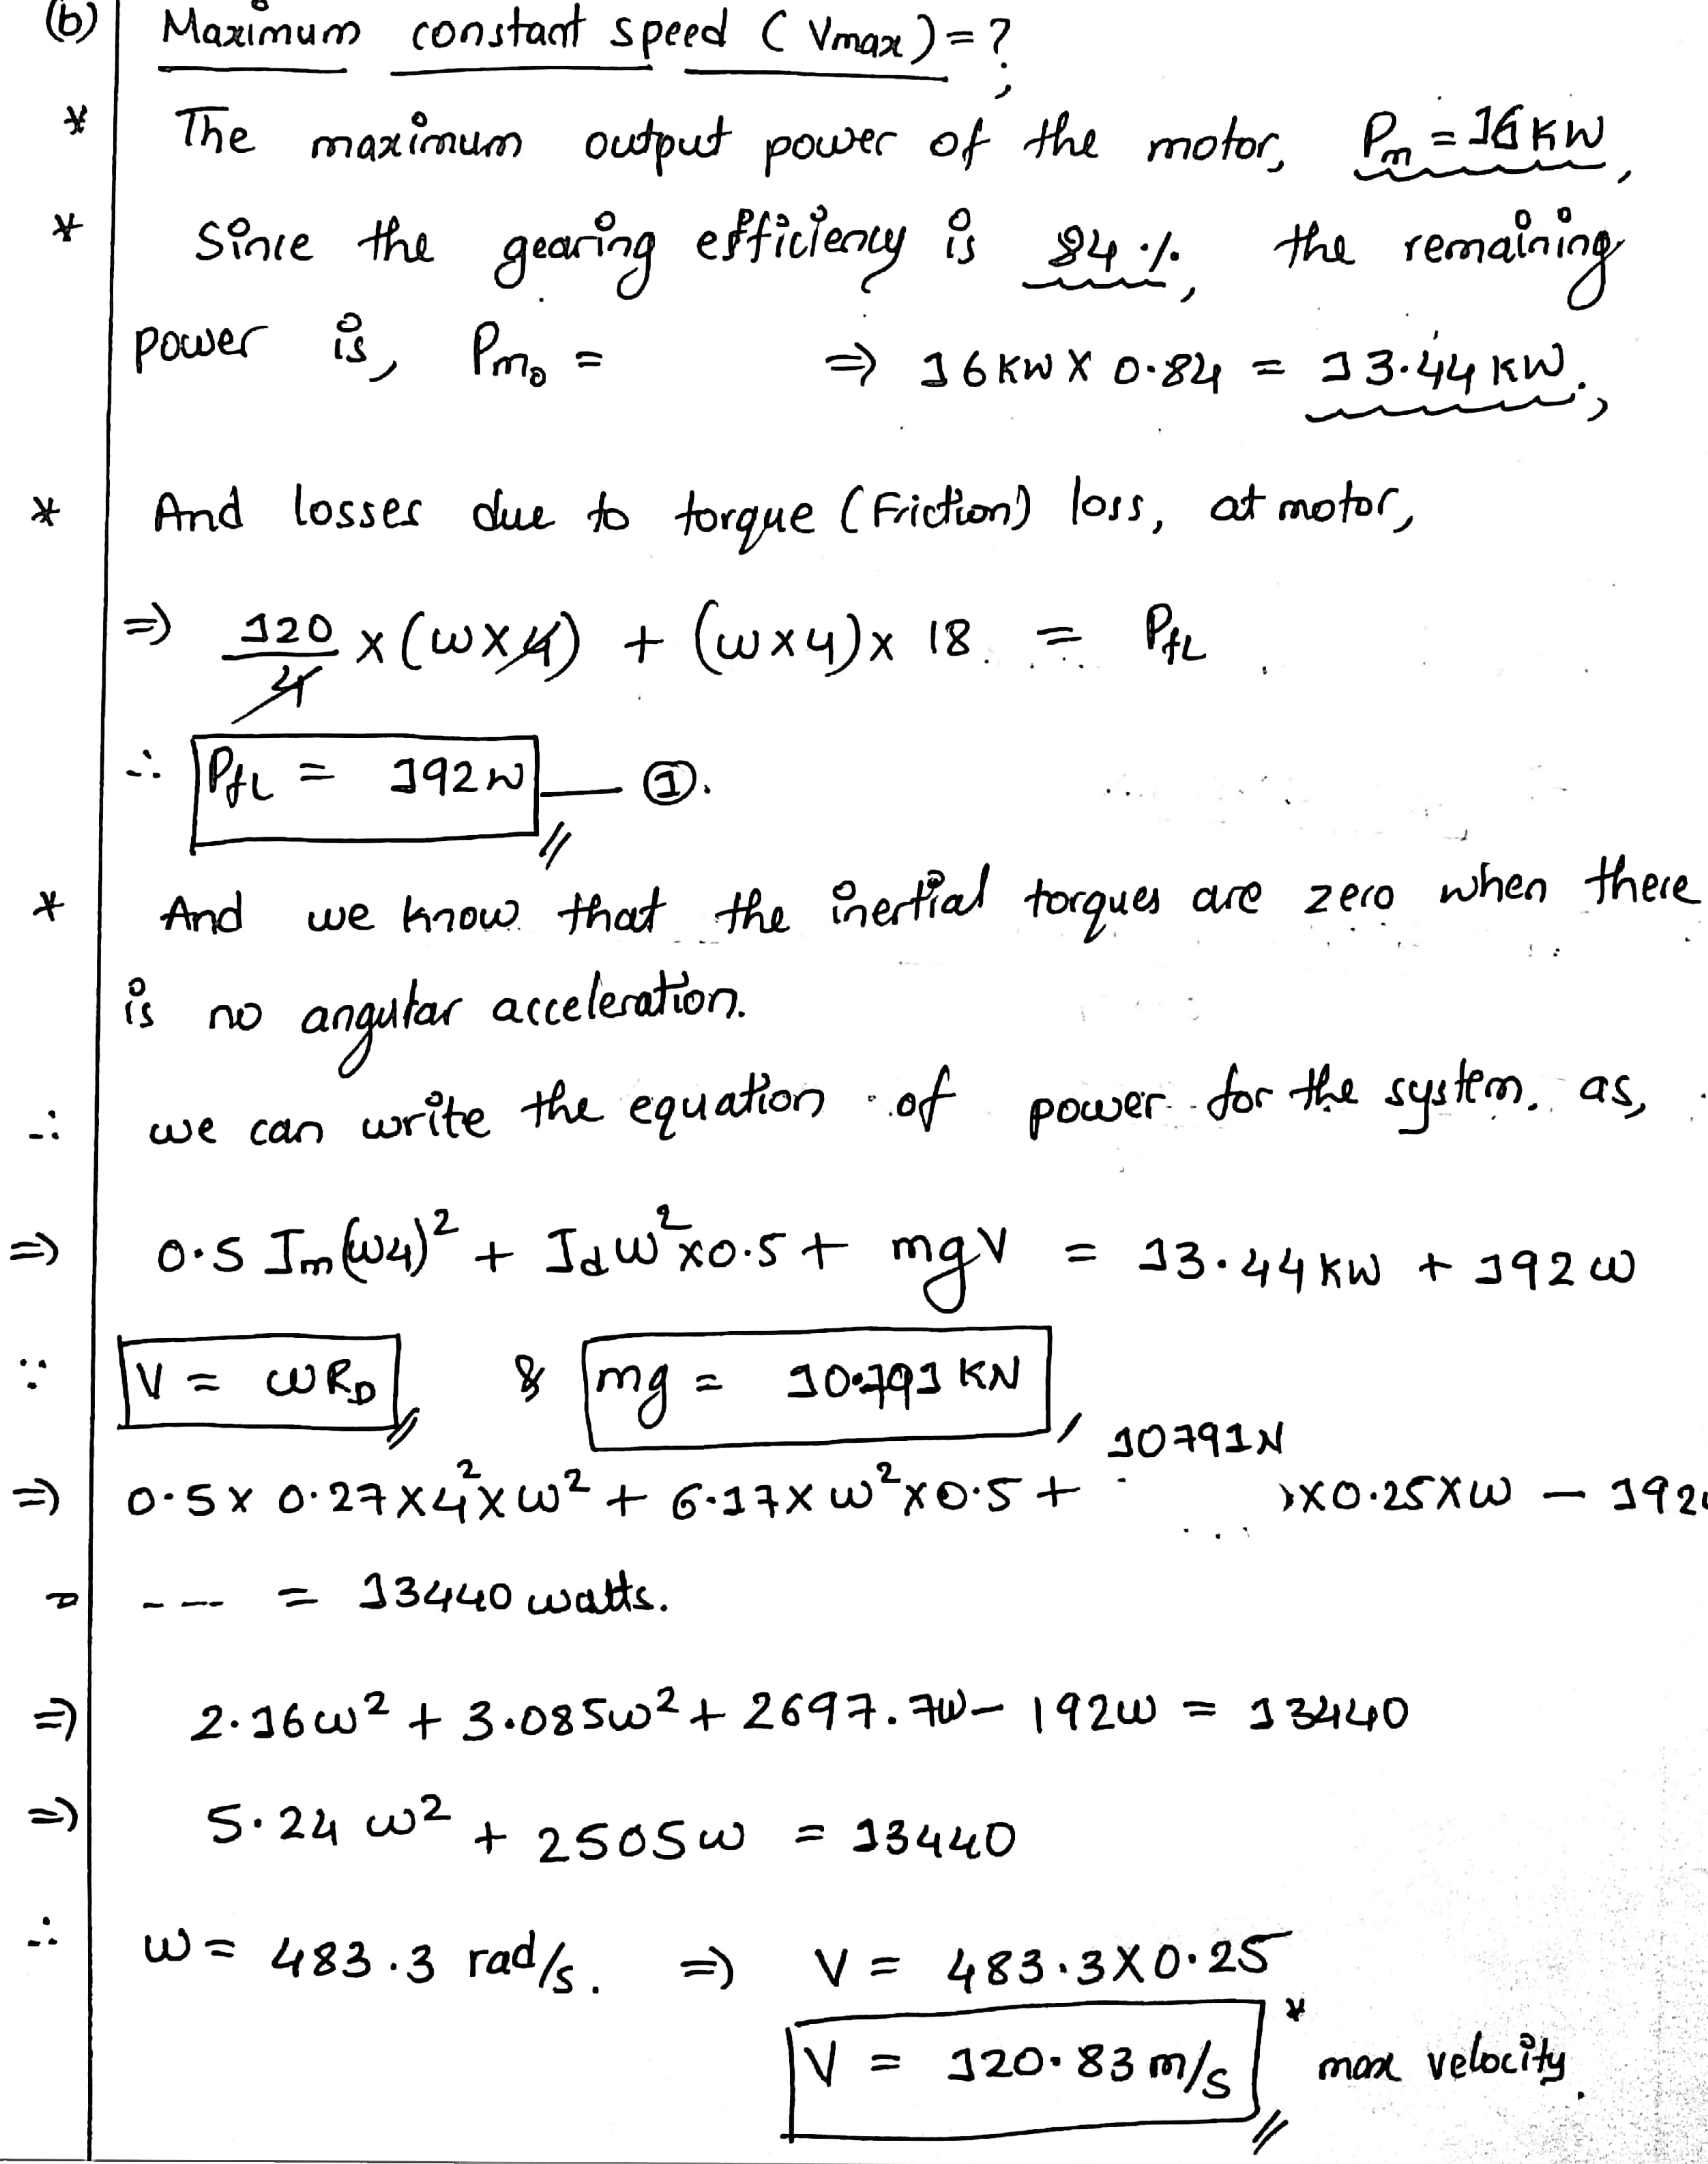 (b) Maximum constant speed (Vmax) = ?
* The maximum output power of the motor, Pm = 16 KW,
* Since the gearing efficiency is 84 %, the remaining
power is, Pmo = ⇒ 16 KW X 0.84 = 13.44 KW.,
* And losses due to torque (Friction) loss, at motor,
⇒ 120/4 x (ωx4) + (ωx4)x 18. = PfL
∴ PfL = 192 W — ①.
* And we know that the inertial torques are zero when there
is no angular acceleration.
∴ we can write the equation of power for the system. as,
⇒ 0.5 Jm(ω4)² + Jdω²x0.5 + mgV = 13.44 KW + 192 ω
∵ V = ωRD & mg = 10.791 KN,
10791N
⇒ 0.5 x 0.27 x 4² x ω² + 6.17 x ω² x 0.5 + x 0.25 x ω — 192
--- = 13440 watts.
⇒ 2.16ω² + 3.085ω² + 2697.7ω - 192ω = 13440
⇒ 5.24 ω² + 2505ω = 13440
∴ ω = 483.3 rad/s. ⇒ V = 483.3X0.25
V = 120.83 m/s * max velocity.